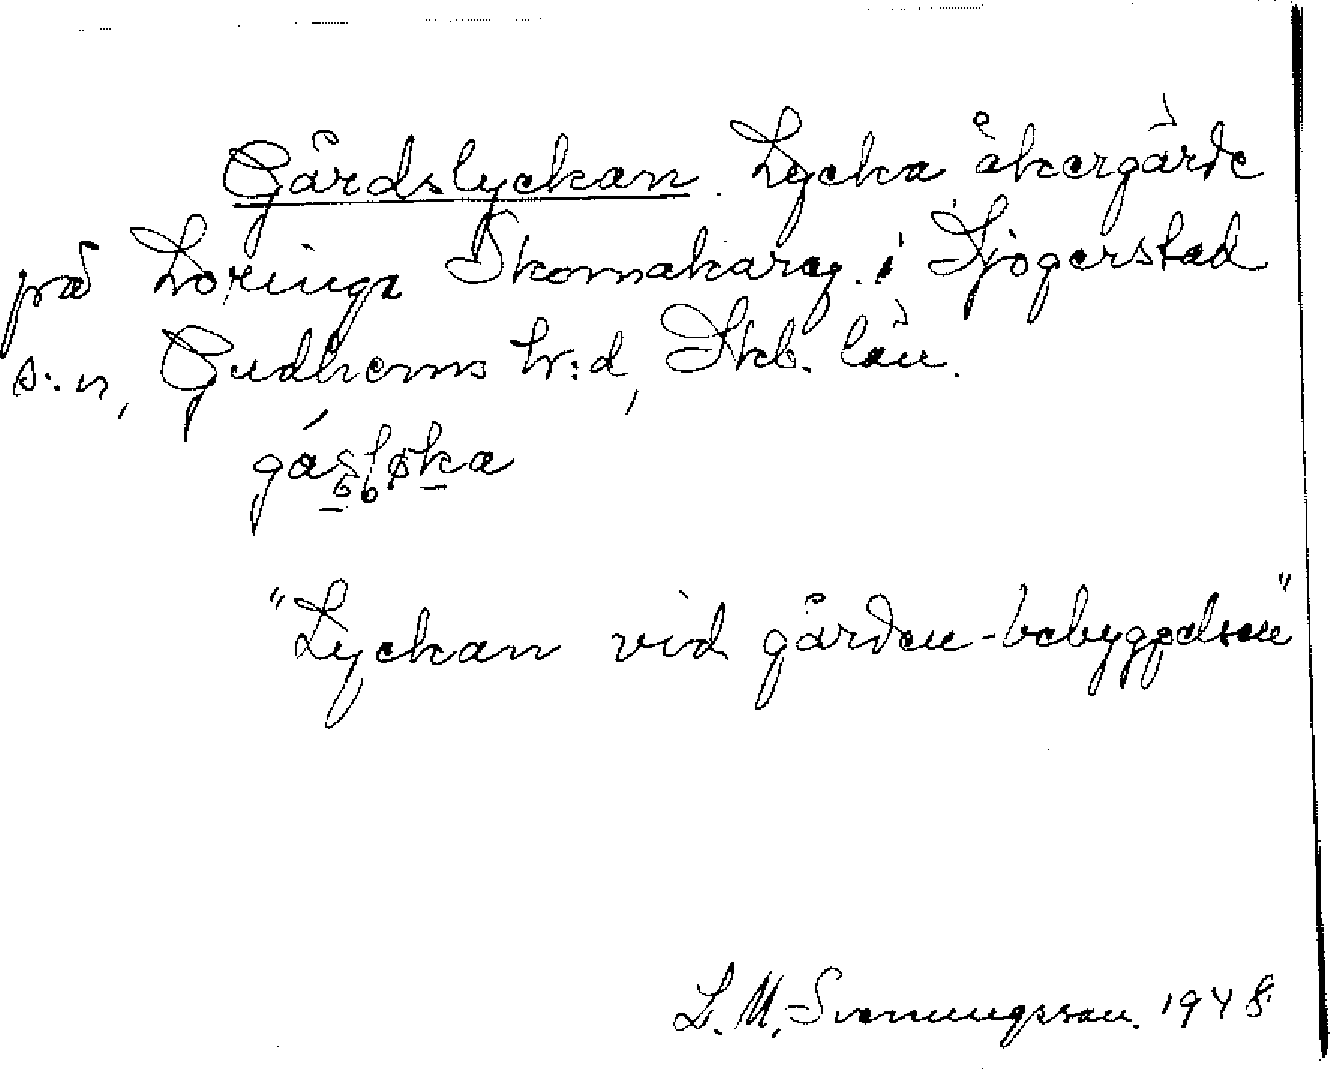 Gårdslyckan. Lycka åkergärde
på Loringa Skomakareg. i Sjogerstad
s:n, Gudhems h:d, Skb. län.
"Lyckan vid gården-bebyggelsen"
L. M. Svenungsson. 1948